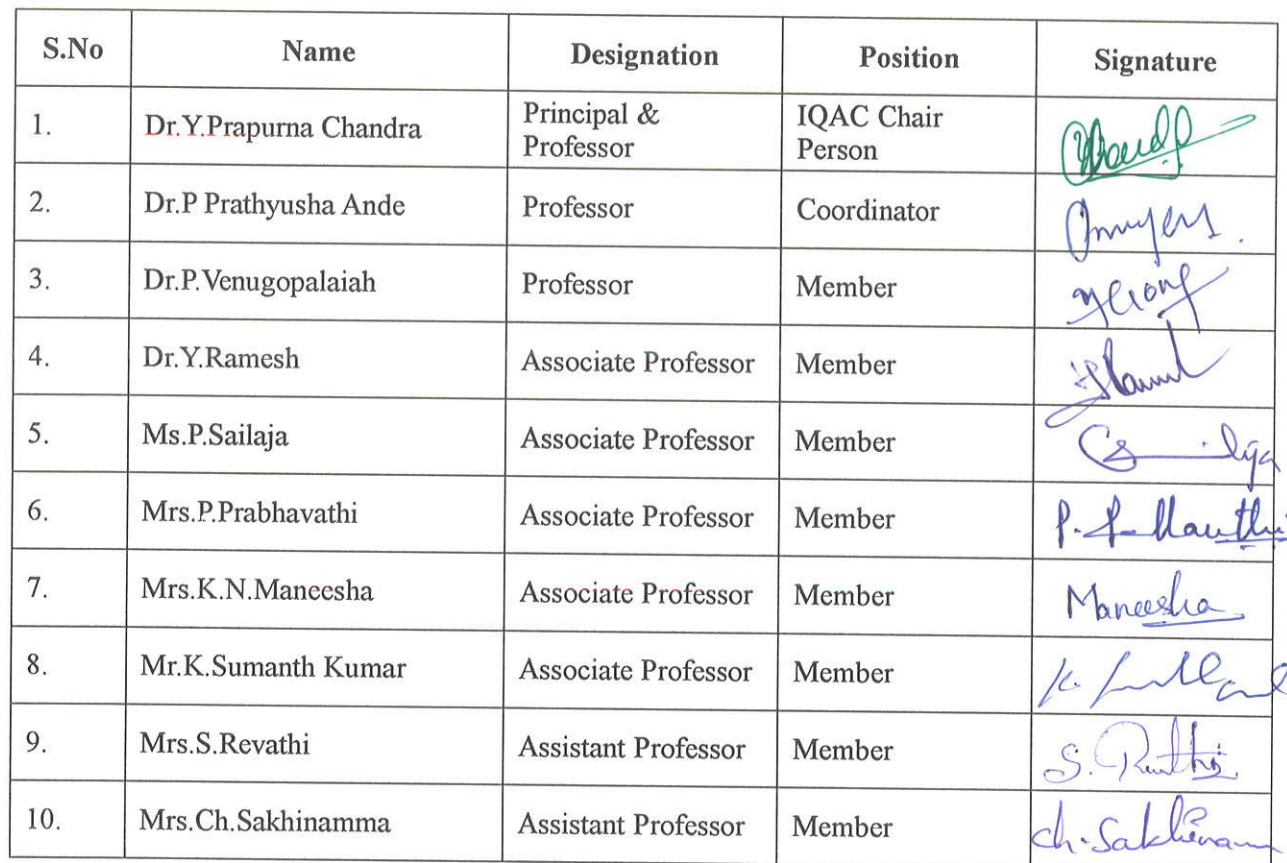 S.No Name Designation Position Signature
1. Dr.Y.Prapurna Chandra Principal & Professor IQAC Chair Person
2. Dr.P Prathyusha Ande Professor Coordinator
3. Dr.P.Venugopalaiah Professor Member
4. Dr.Y.Ramesh Associate Professor Member
5. Ms.P.Sailaja Associate Professor Member
6. Mrs.P.Prabhavathi Associate Professor Member
7. Mrs.K.N.Maneesha Associate Professor Member Maneesha
8. Mr.K.Sumanth Kumar Associate Professor Member
9. Mrs.S.Revathi Assistant Professor Member
10. Mrs.Ch.Sakhinamma Assistant Professor Member